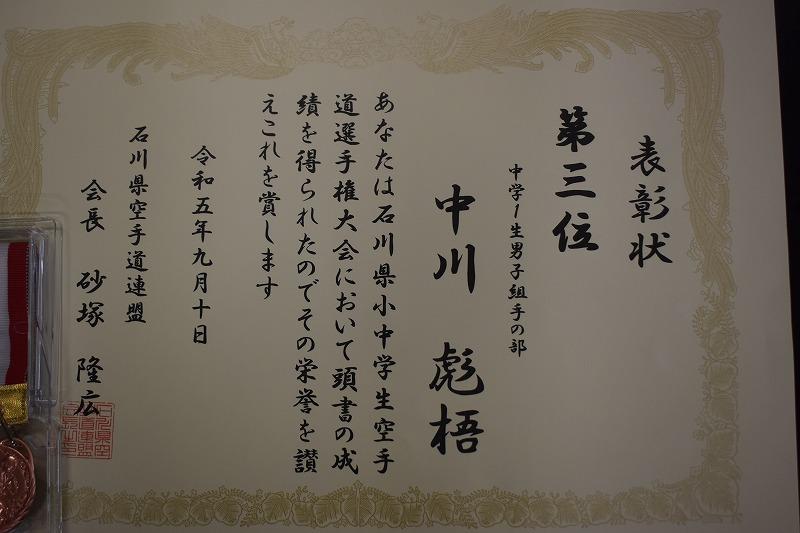 表彰状
第三位
中学1生男子組手の部
中川 彪梧
あなたは石川県小中学生空手
道選手権大会において頭書の成
績を得られたのでその栄誉を讃
えこれを賞します
令和五年九月十日
石川県空手道連盟
会長 砂塚 隆広